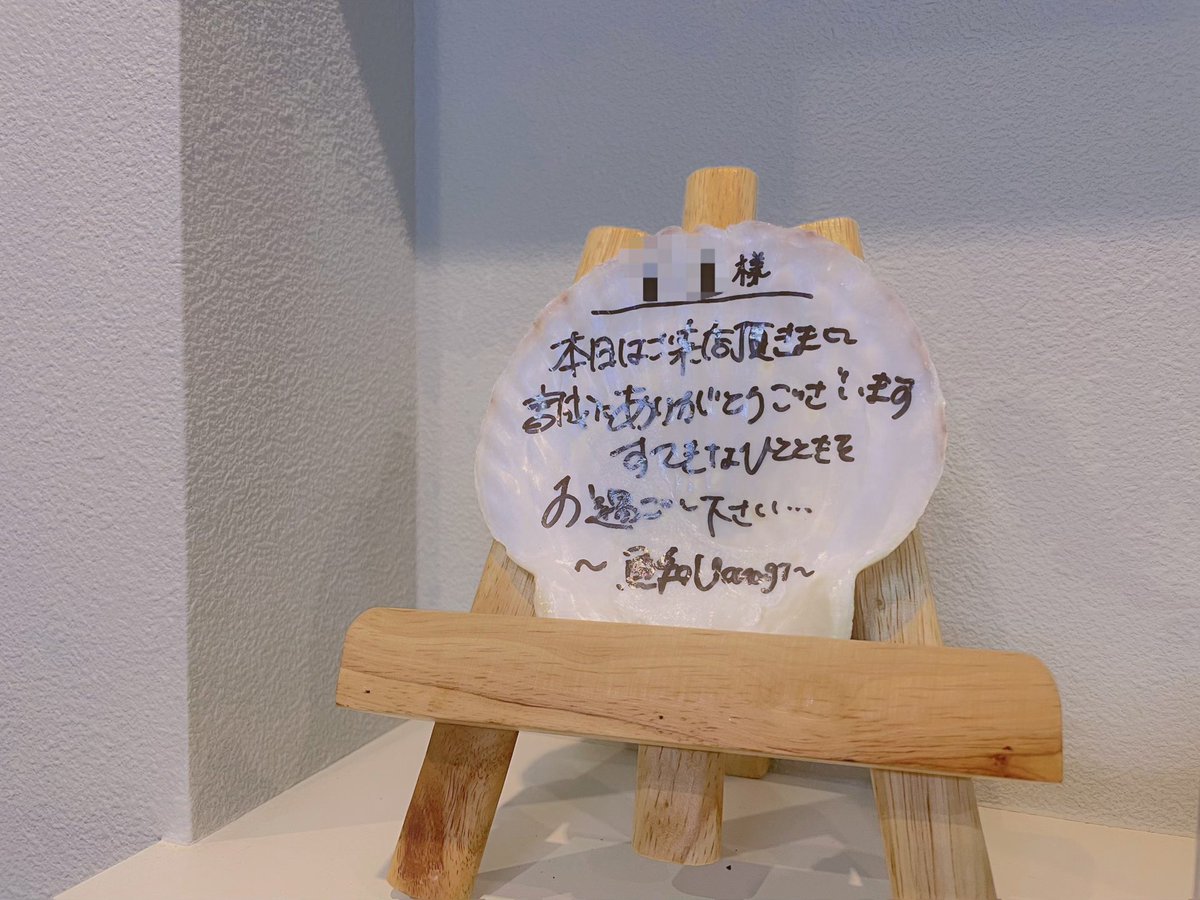 様
本日はご来店頂きまして
誠にありがとうございます
すてきなひとときを
お過ごし下さい…